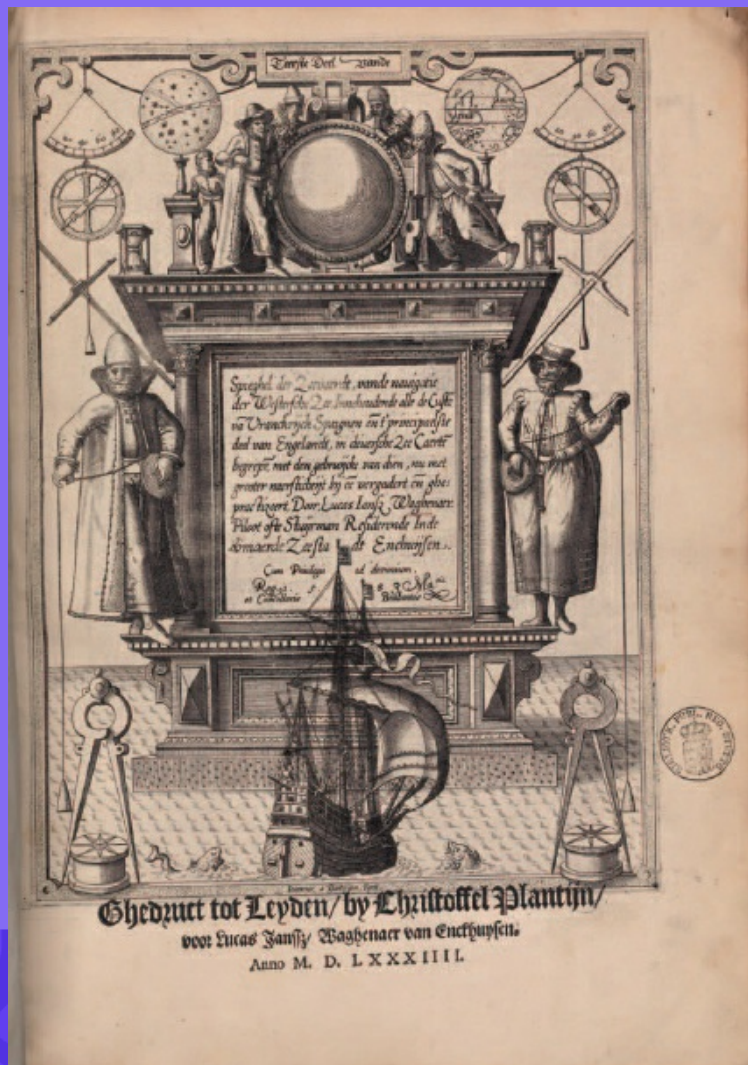 Teerste Deel vande
Spieghel der Zeevaerdt, vande navigatie
der Westersche Zee, Innehoudende alle de Custē
vā Vranckrijck Spaignen eñ t'principaelste
deel van Engelandt, in diversche Zee Caertē
begrepē, met den gebruijcke van dien, nu met
grooter naersticheijt bij eē vergadert eñ ghe:
practizeert, Door Lucas Iansz Waghenaer
Piloot ofte Stuijrman Residerende Inde
vermaerde Zeestadt Enchuijsen.
Cum Privilegio ad decennium.
Reg. 5 8 3
et Cancellarie Brabantie
Ghedruct tot Leyden/ by Christoffel Plantijn/
voor Lucas Janssz/ Waghenaer van Enckhuysen.
Anno M. D. LXXXIIII.